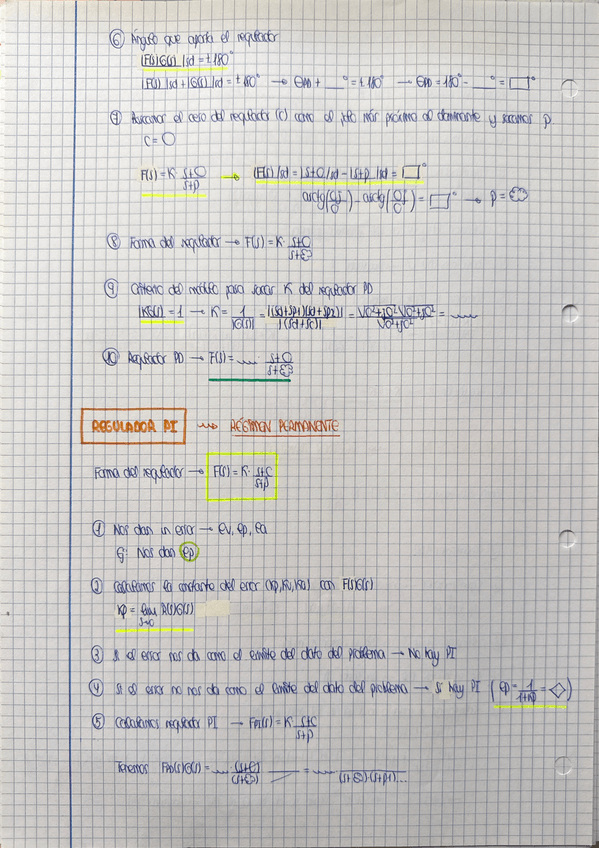 ⑥ Ángulo que aporta el regulador
|F(s)G(s) |sd = ±180°
|F(s) |sd + |G(s) |sd = ±180° → θPD + ___° = ±180° → θPD = 180° - ___° = □°
⑦ Asociamos el cero del regulador (c) como el más próximo al dominante y sacamos p
c = O
F(s) = K · (s+O)/(s+p) → |F(s) |sd = |s+O |sd - |s+p |sd = □°
arctg( ) - arctg( ) = □° → p = εз
⑧ Forma del regulador → F(s) = K · (s+O)/(s+εз)
⑨ Criterio del módulo para sacar K del regulador PD
|KG(s)| = 1 → K = 1/|G(s)| = |(sd+sp1)(sd+sp2)|/|(sd+sc)| = √O²+JO² √O²+JO²/√O²+JO² = ......
⑩ Regulador PD → F(s) = ..... · (s+O)/(s+εз)
REGULADOR PI → RÉGIMEN PERMANENTE
Forma del regulador → F(s) = K · (s+c)/(s+p)
① Nos dan un error → ev, ep, ea
Ej: Nos dan ep
② Calculamos la constante del error (Kp, Kv, Ka) con F(s)G(s)
Kp = lim s→0 F(s)G(s)
③ Si el error nos da como el límite del dato del problema → No hay PI
④ Si el error no nos da como el límite del dato del problema → Sí hay PI (ep = 1/(1+Kp) = ◇)
⑤ Calculamos regulador PI → FPI(s) = K · (s+c)/(s+p)
Tenemos FPD(s)G(s) = ..... (s+O)/(s+εз) ____ = ..... /(s+εз)·(s+p1)...